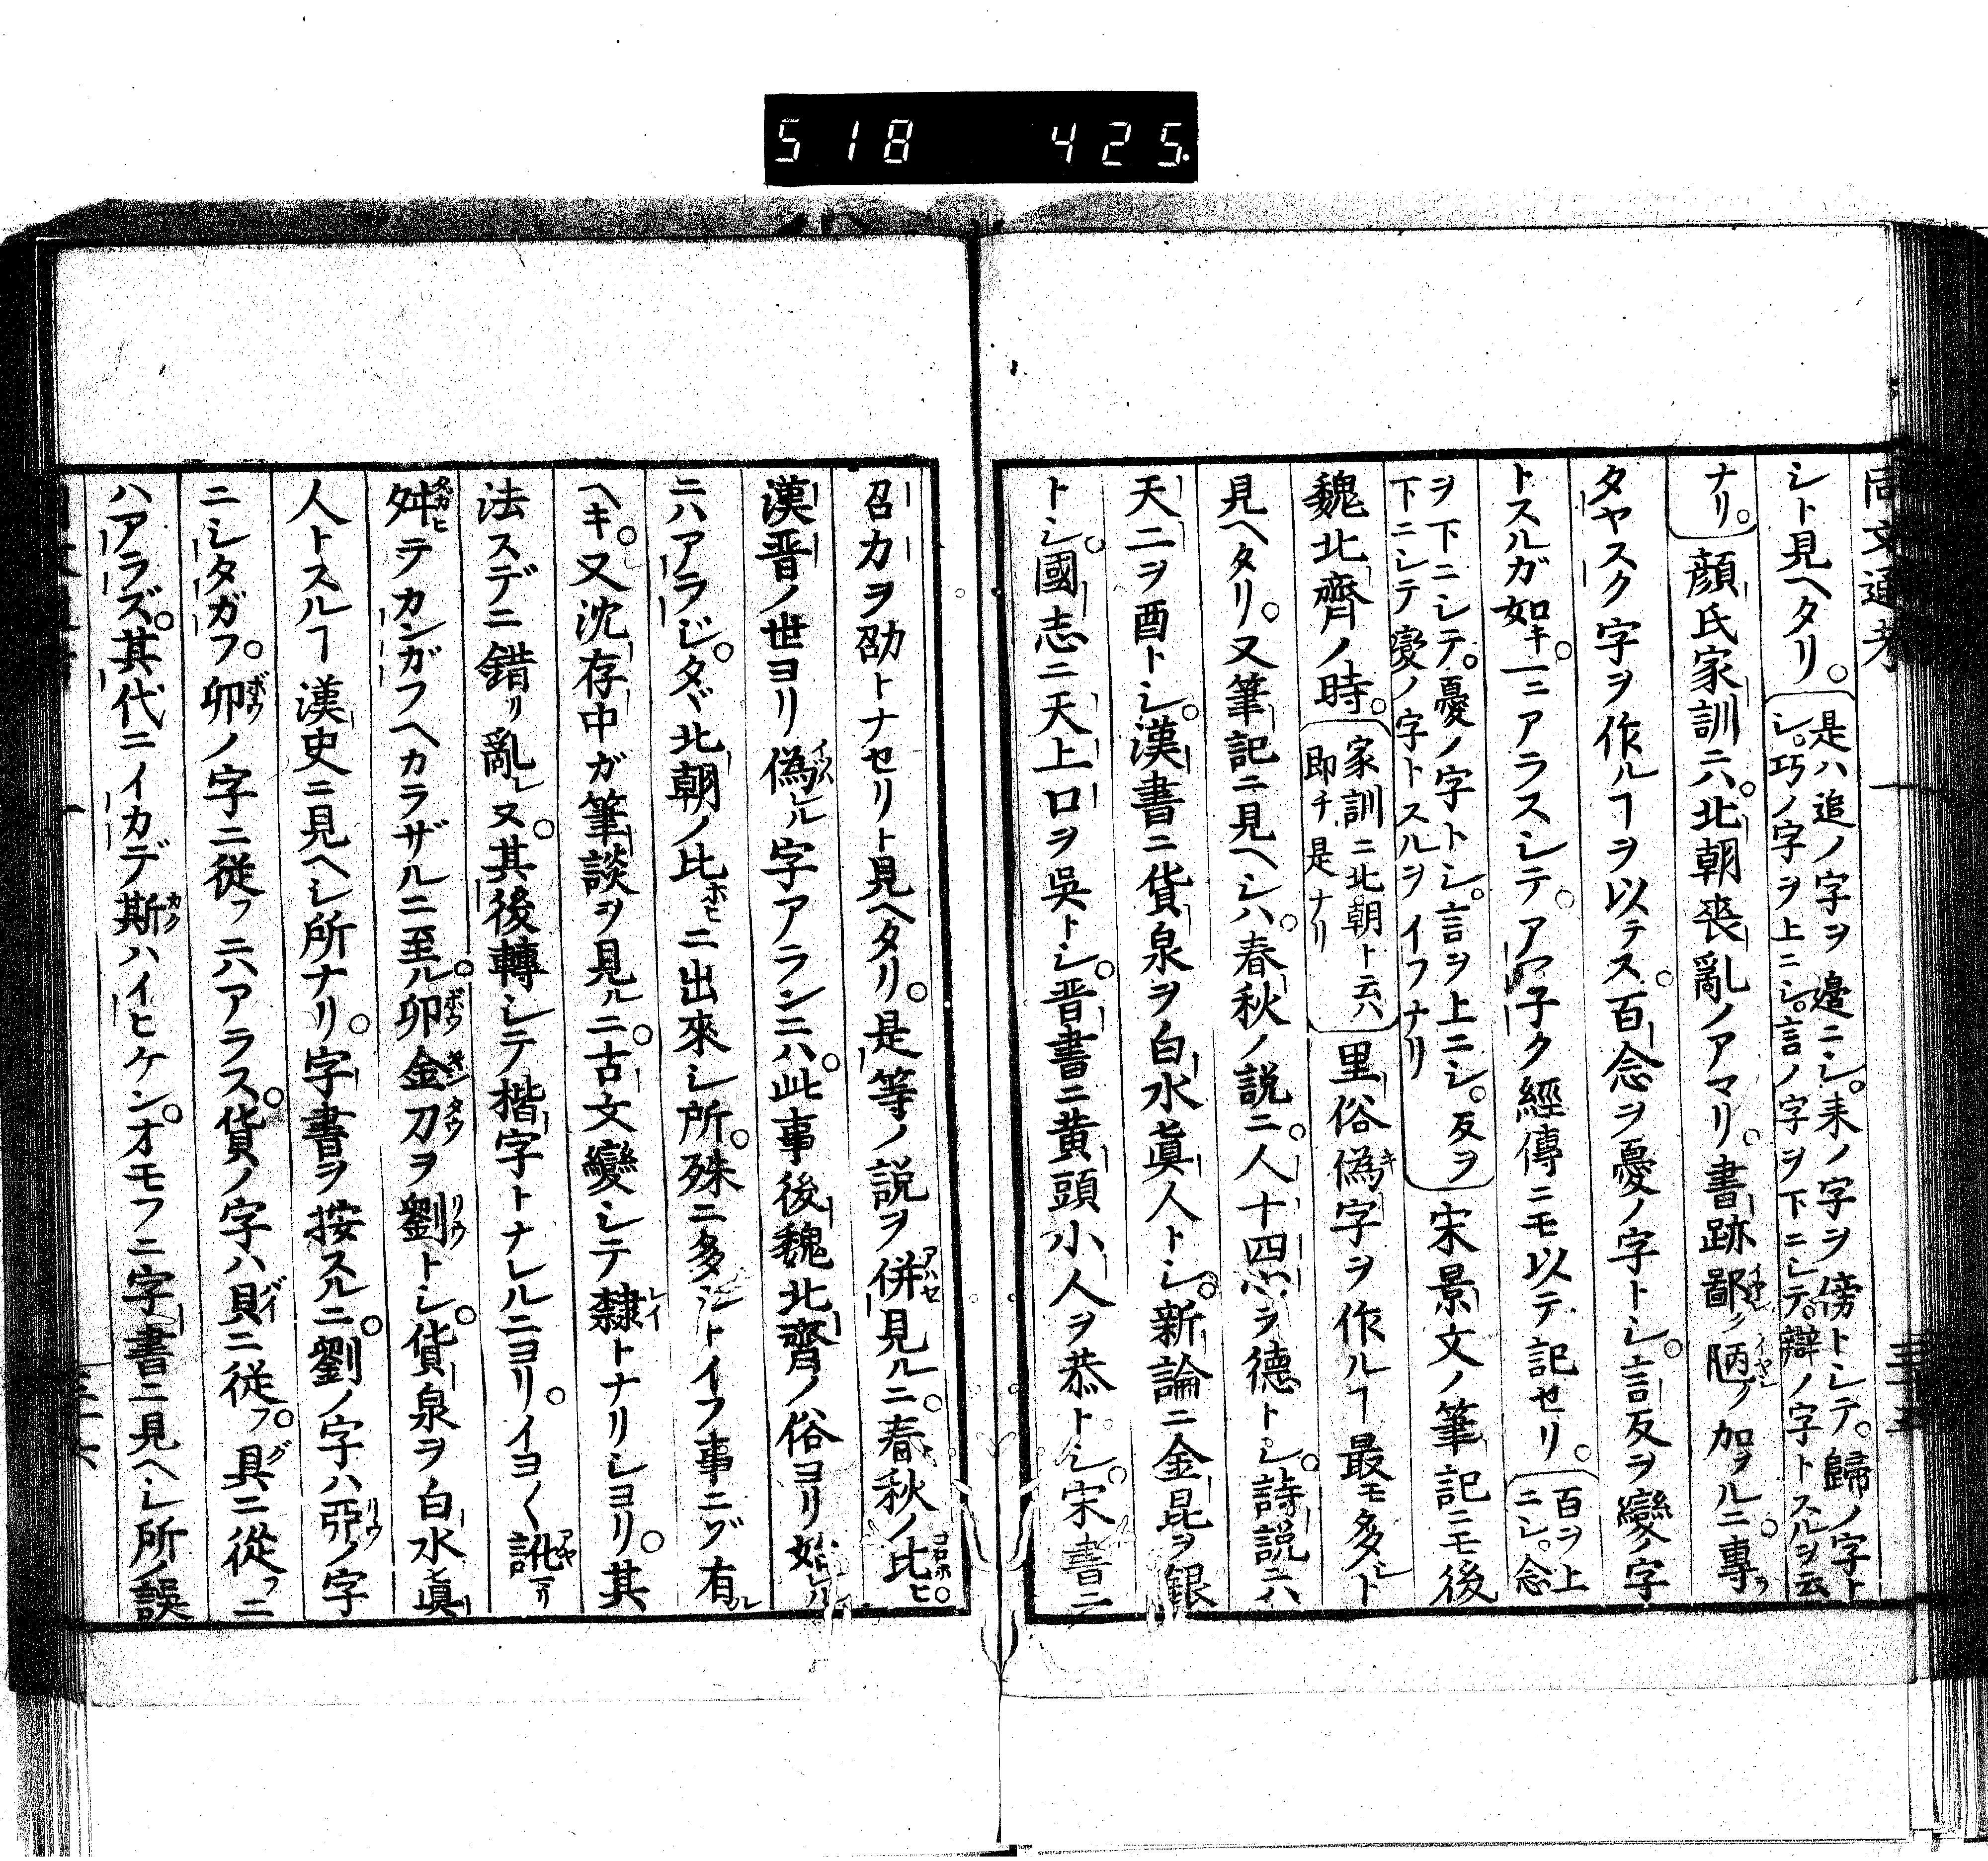 518 425.
同文通考
シト見ヘタリ。是ハ追ノ字ヲ邉ニシ。耒ノ字ヲ傍トシテ。歸ノ字ト
シ。巧ノ字ヲ上ニシ。言ノ字ヲ下ニシテ。辯ノ字トスルヲ云
ナリ。顔氏家訓ニハ。北朝喪亂ノアマリ。書跡鄙ク陋ク加ヲルニ。專ラ
タヤスク字ヲ作ルヿヲ以テス。百念ヲ憂ノ字トシ。言反ヲ變ノ字
トスルガ如キ。一ニアラスシテ。アマ子ク經傳ニモ以テ記セリ。百ヲ上
ニシ。念
ヲ下ニシテ。憂ノ字トシ。言ヲ上ニシ。反ヲ
下ニシテ變ノ字トスルヲイフナリ
宋景文ノ筆記ニモ後
魏北齊ノ時。家訓ニ北朝ト云ハ
即チ是ナリ
里俗偽字ヲ作ルヿ最モ多シト
見ヘタリ。又筆記ニ見ヘシハ。春秋ノ説ニ。人十四心ヲ德トシ。詩説ニハ
天二ヲ酉トシ。漢書ニ貨泉ヲ白水眞人トシ。新論ニ金昆ヲ銀
トシ。國志ニ天上口ヲ吳トシ。晋書ニ黄頭小人ヲ恭トシ。宋書ニ
召力ヲ劭トナセリト見ヘタリ。是等ノ説ヲ併見ルニ。春秋ノ比ヒ。
漢晋ノ世ヨリ偽レル字アランニハ。此事後魏北齊ノ俗ヨリ始レルニ
ニハアラじ。タヾ北朝ノ比ホヒニ出來シ所。殊ニ多シトイフ事ニゾ有ル
ヘキ。又沈存中ガ筆談ヲ見ルニ。古文變シテ隸トナリシヨリ。其
法スデニ錯リ亂レ。又其後轉シテ楷字トナレルニヨリ。イヨ〱訛リ
舛テカンガフヘカラザルニ至ル。卯金刀ヲ劉トシ。貨泉ヲ白水眞
人トスルヿ漢史ニ見ヘシ所ナリ。字書ヲ按スルニ。劉ノ字ハ丣ノ字
ニシタガフ。卯ノ字ニ從フニハアラス。貨ノ字ハ貝ニ從フ。具ニ從フニ
ハアラズ。其代ニイカデ斯ハイヒケン。オモフニ字書ニ見ヘシ所ノ誤